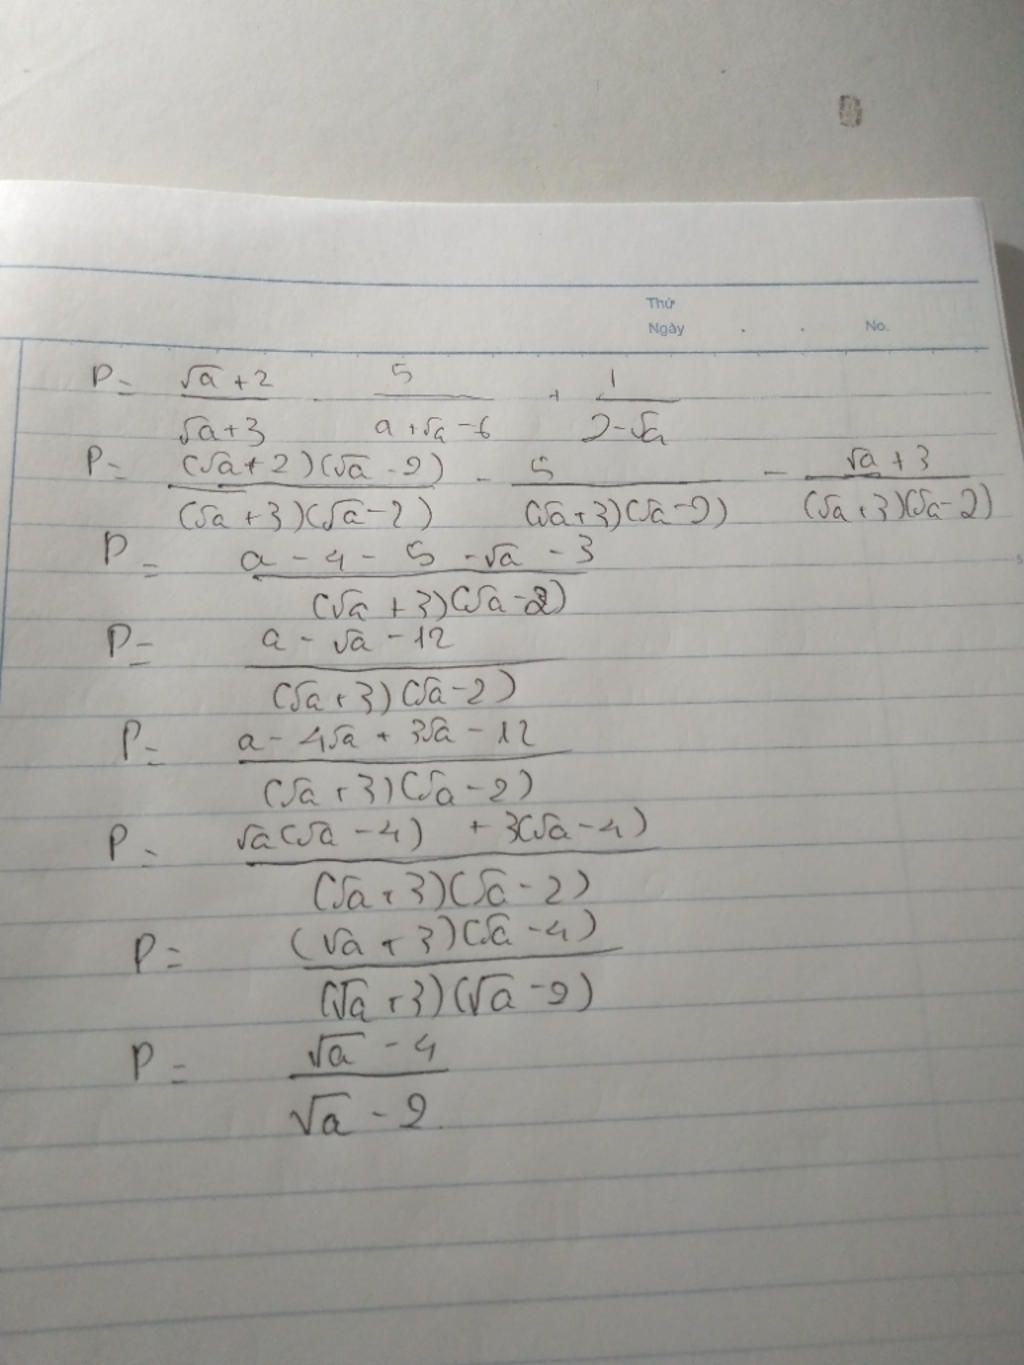 Thứ
Ngày . . No.
P = (√a + 2)/(√a + 3) - 5/(a + √a - 6) + 1/(2 - √a)
P = (√a + 2)(√a - 2)/(√a + 3)(√a - 2) - 5/(√a + 3)(√a - 2) - (√a + 3)/(√a + 3)(√a - 2)
P = (a - 4 - 5 - √a - 3)/(√a + 3)(√a - 2)
P = (a - √a - 12)/(√a + 3)(√a - 2)
P = (a - 4√a + 3√a - 12)/(√a + 3)(√a - 2)
P = (√a(√a - 4) + 3(√a - 4))/(√a + 3)(√a - 2)
P = (√a + 3)(√a - 4)/(√a + 3)(√a - 2)
P = (√a - 4)/(√a - 2)